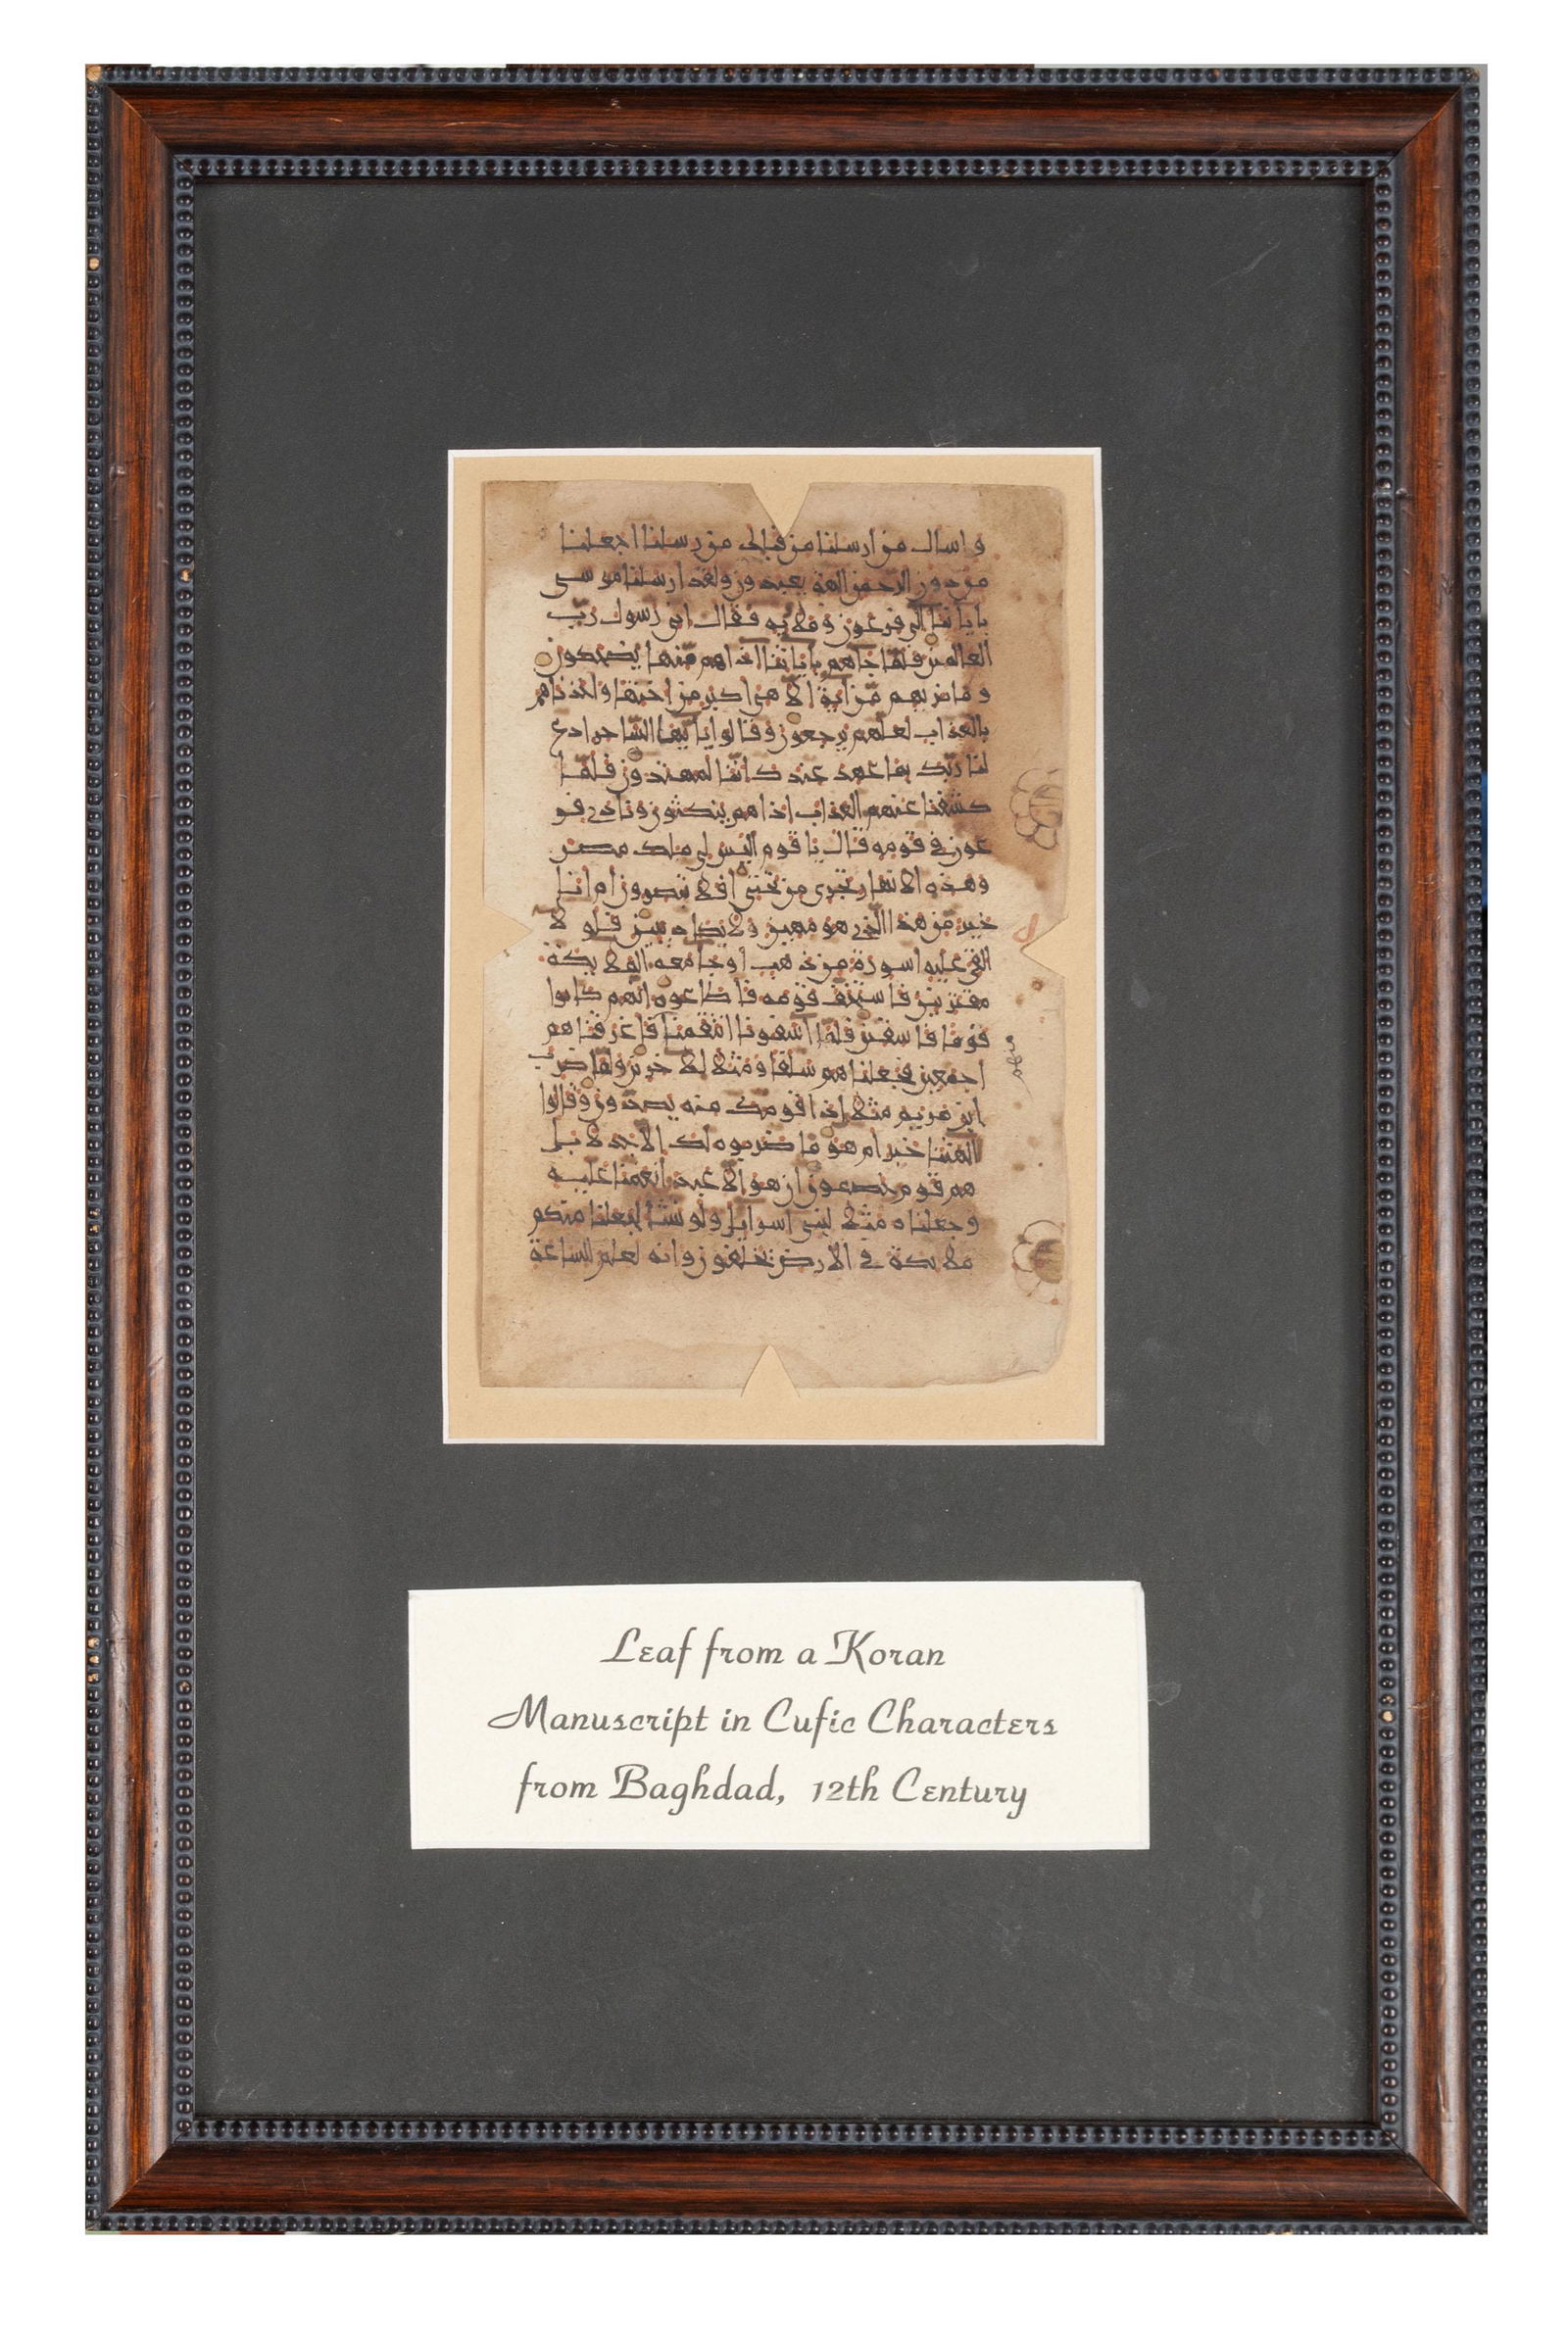 و اسال من ارسلنا من قبلك من رسلنا اجعلنا
من دون الرحمن الهة يعبدون ولقد ارسلنا موسى
باياتنا الى فرعون وملايه فقال انى رسول رب
العالمين فلما جاهم باياتنا اذاهم منها يضحكون
و مانريهم من اية الا هى اكبر من اختها و اخذناهم
بالعذاب لعلهم يرجعون وقالوا يا ايها الساحر ادع
لنا ربك بما عهد عندك اننا لمهتدون فلما
كشفنا عنهم العذاب اذا هم ينكثون ونادى فر
عون فى قومه قال يا قوم اليس لى ملك مصر
وهذه الانهار تجرى من تحتى افلا تبصرون ام انا
خير من هذا الذى هو مهين ولا يكاد يبين فلو لا
القى عليه اسورة من ذهب او جا معه الملايكة
مقترنين فاستخف قومه فاطاعوه انهم كانوا
قوما فاسقين فلما اسفونا انتقمنا فاغرقناهم
اجمعين فجعلناهم سلفا ومثلا للاخرين ولما ضرب
ابن مريم مثلا اذا قومك منه يصدون وقالوا
االهتنا خير ام هو ما ضربوه لك الا جدلا بل
هم قوم خصمون ان هو الا عبد انعمنا عليه
وجعلناه مثلا لبنى اسرايل ولو نشا لجعلنا منكم
ملايكة فى الارض يخلفون وانه لعلم للساعة
Leaf from a Koran
Manuscript in Cufic Characters
from Baghdad, 12th Century